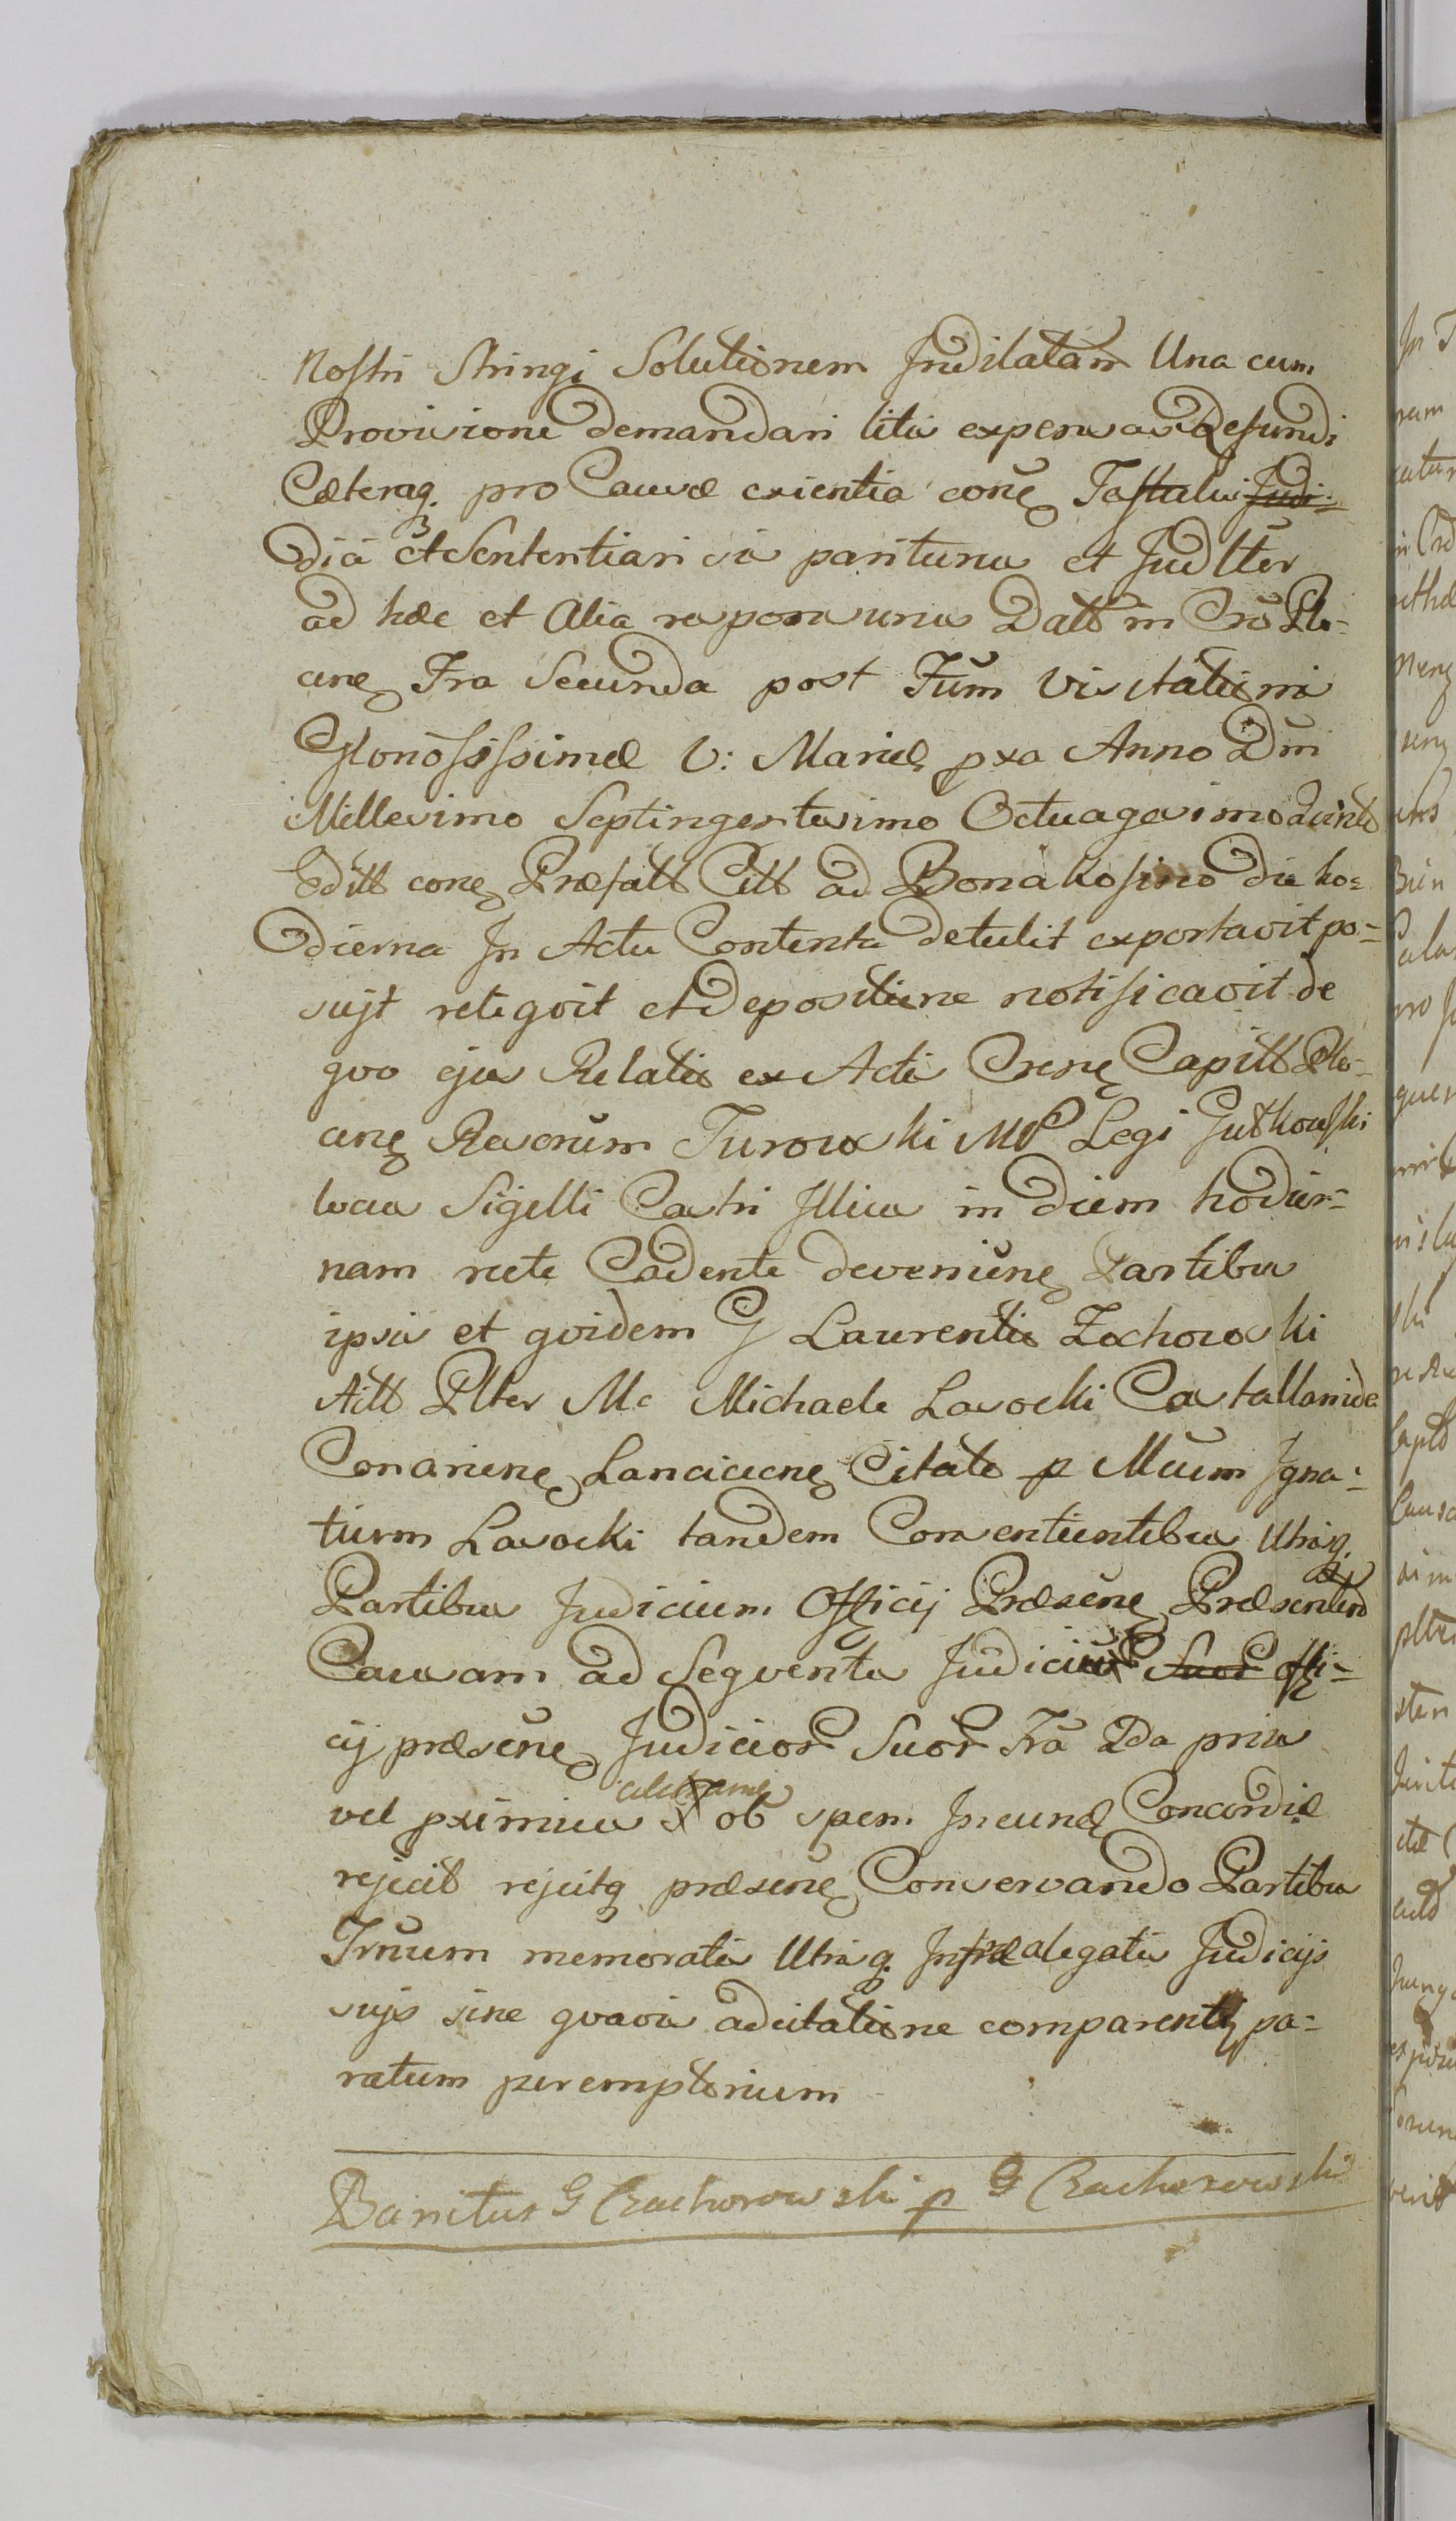 Nostri Stringi Solutionem Indilatam Una cum
Provisione demandari litis expensas Refundi
Cæteraq. pro Causæ exientia conę Testalis Judi=
dia et Sententiari sis pariturus et Judlter
ad hæc et Alia responsurus Datt in Cro Plo=
cinę Fra Secunda post Fum Visitationis
Gloriosissimæ V: Mariæ pxa Anno Dni
Millesimo Septingentesimo Octuagesimo Quinto
Editt conę Præfatt Citt ad Bona Kosino die ho=
dierna In Actu Contenta detulit exportavit po=
sujt reliqvit et depositione notificavit de
qvo ejus Relatio ex Actis Crenę Capitt Plo=
cinę Rexorum Turowski MP Legi Gutkowski
locus Sigelli Castri Illius in diem hodier=
nam recte Cadente deveniunę Partibus
ipsis et qvidem G Laurentio Zochowski
Actt Plter Mc Michaele Lasocki Castallanide
Conarienę Lanciciense Citato p Mcum Igna=
tium Lasocki tandem Consentientibus Utrisq.
Partibus Judicium Officij Præsenę Præsentem
Causam ad Seqventia Judicia Suor Offi=
cij præsenę Judicior Suor Fra 2da prius
vel pximius celebranę ob spem Ineunę Concordiæ
rejecit rejcitq præsenę Conservando Partibus
Trnum memoratis Utrisq. In præalegatis Judicijs
sujs sine qvavis adcitatione comparenti pa=
ratum peremptorium
Banitus G Czachorowski p G Czachorowski